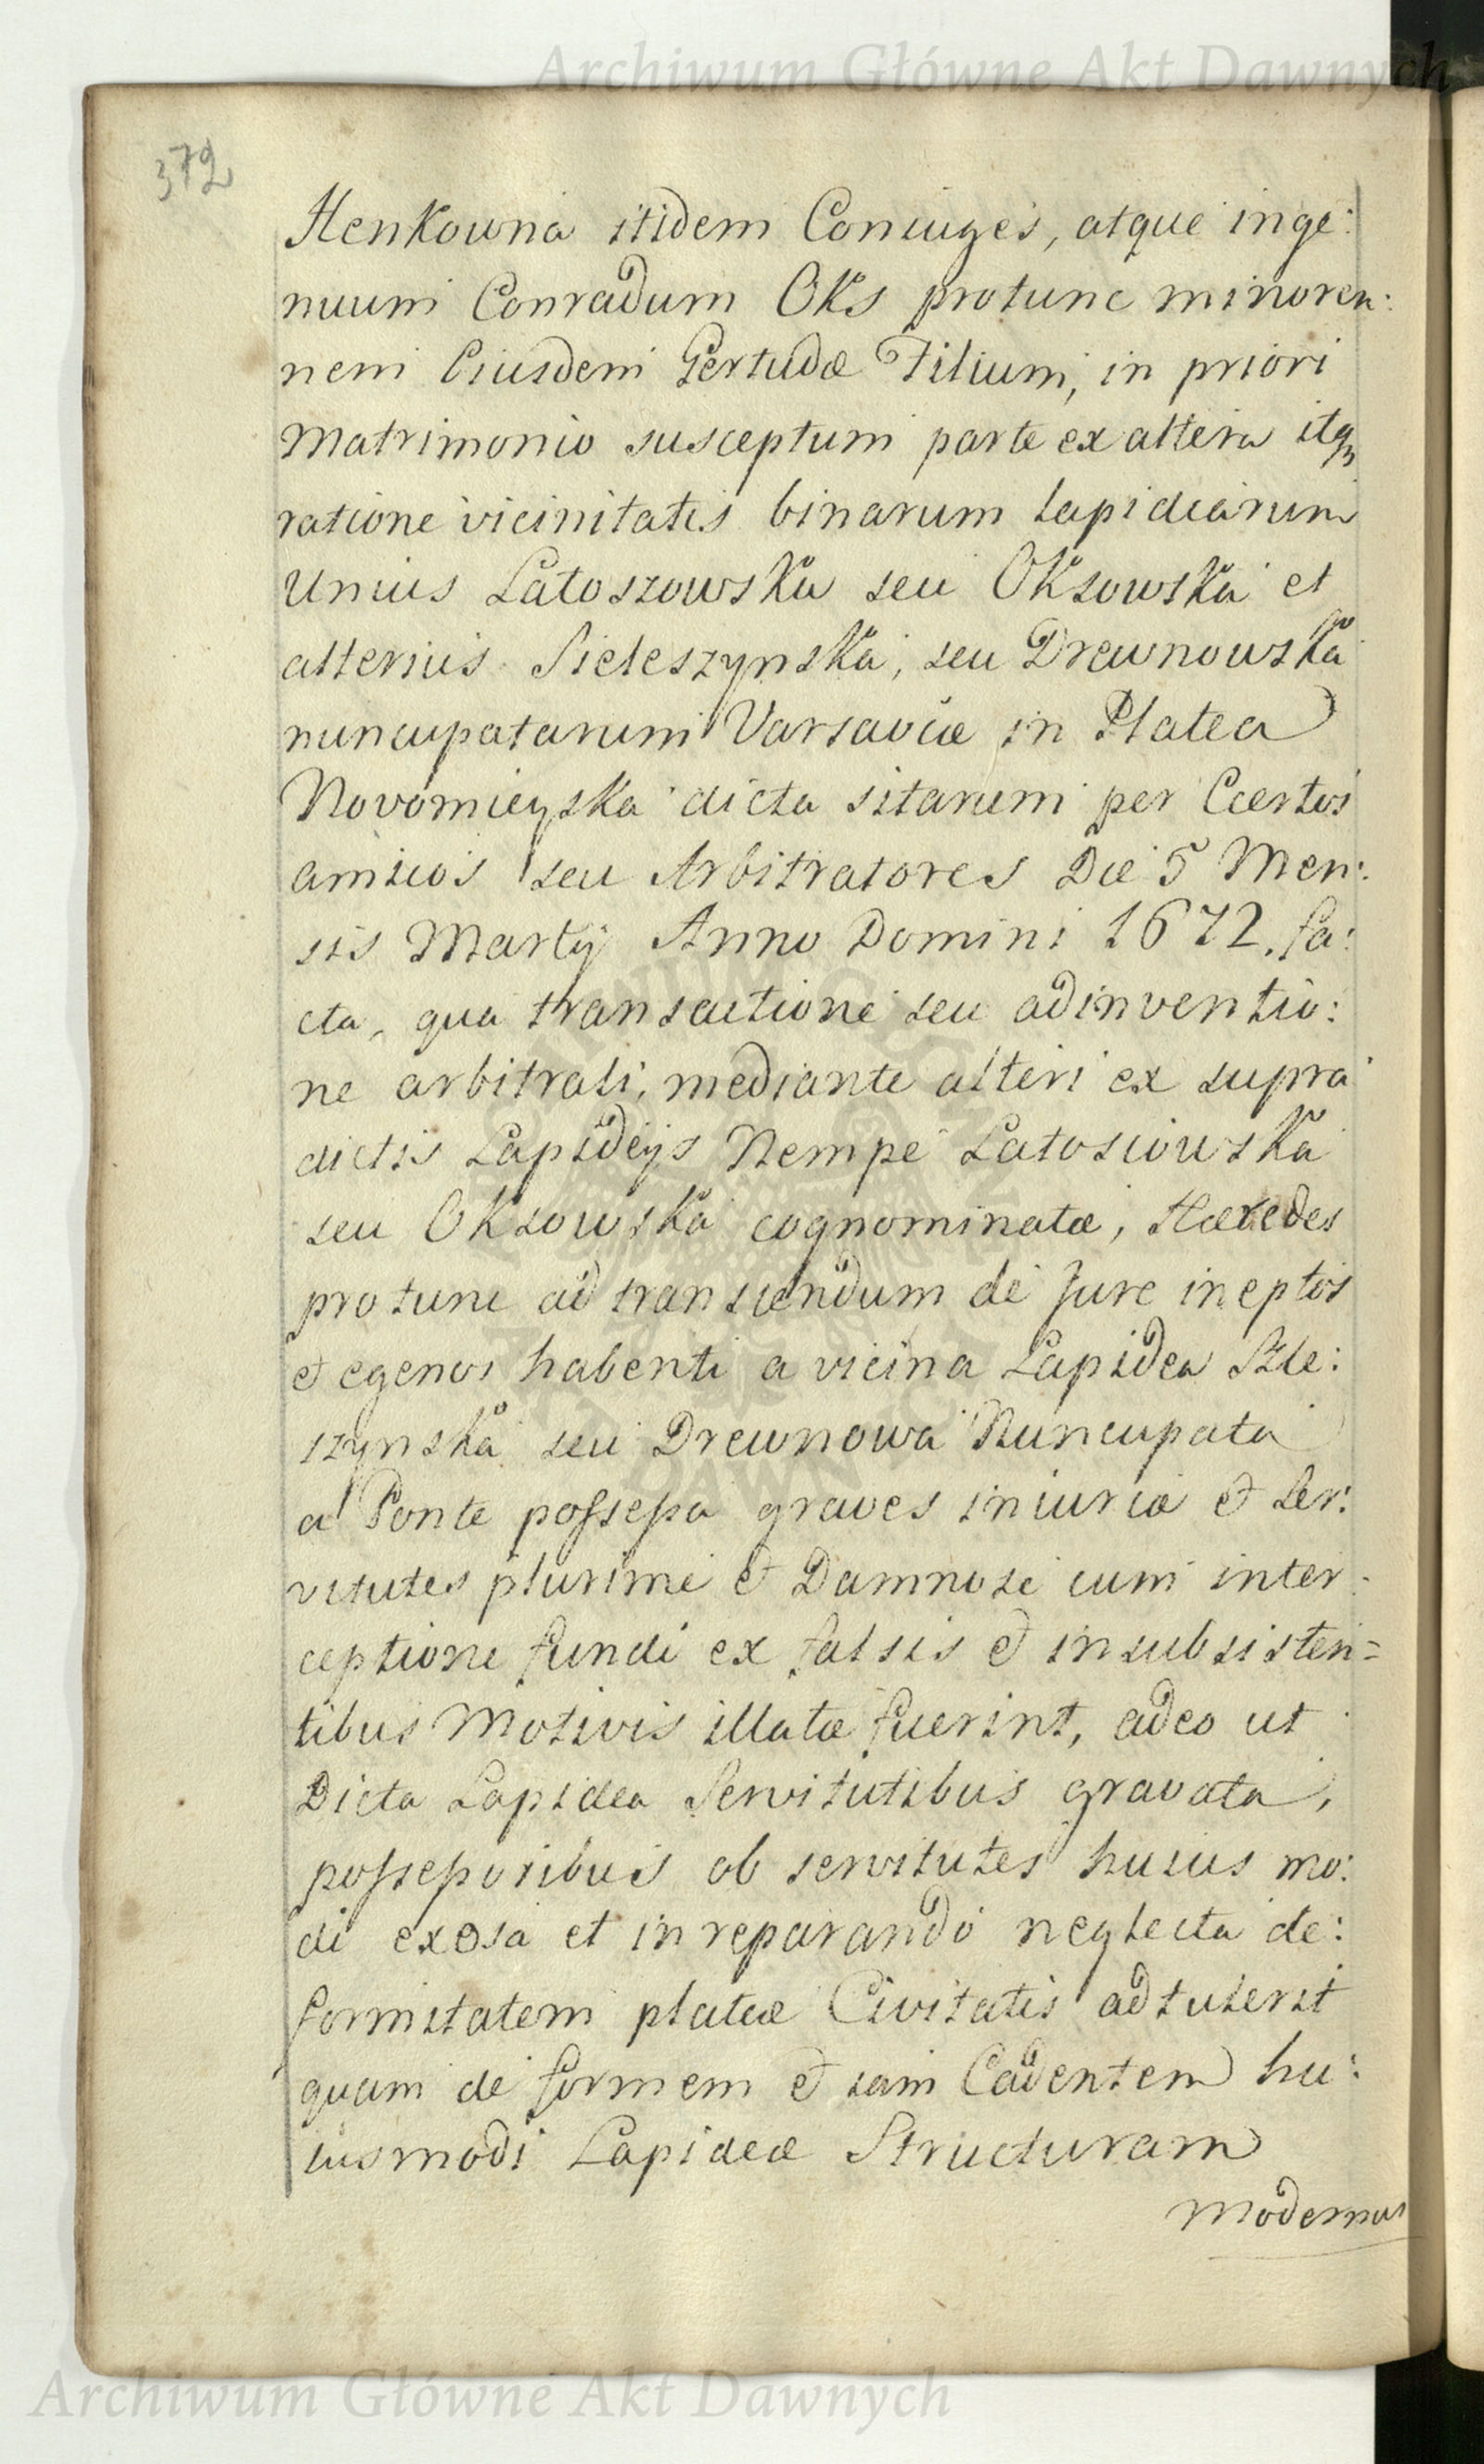 Archiwum Główne Akt Dawnych
372
Henkowna itidem Coniuges, atque inge:
nuum Conradum Oks protunc minoren:
nem Eiusdem Gertudæ Filium, in priori
Matrimonio susceptum parte ex altera itq
ratione vicinitatis binarum Lapidearum
Unius Latoszowska seu Oksowska et
alterius Sieleszynska, seu Drewnowska
nuncupatarum Varsaviæ in Platea
Novomieyska dicta sitarum per Certos
amicos seu Arbitratores Die 5 Men:
sis Martij Anno Domini 1672. fa:
cta, qua transactione seu adinventio:
ne arbitrali, mediante alteri ex supra
dictis Lapideys Nempe Latosiowska
seu Oksowska cognominatæ, Hæredes
protunc ad transiendum de Jure ineptos
et egenos habenti a vicina Lapidea Szle:
szynska seu Drewnowa Nuncupata
a Ponte possessa graves iniuriæ et Ser:
vitutes plurime et Damnose cum inter
ceptione fundi ex falsis et insubsisten=
tibus Motivis illatæ fuerint, adeo ut
Dicta Lapidea Servitutibus gravata,
possessoribus ob servitutes huius mo:
di exosa et in reparando neglecta de:
formitatem plateæ Civitatis adtulerit
quam de formem et iam Cadentem hu:
iusmodi Lapideæ Structuram
Modernus
Archiwum Główne Akt Dawnych